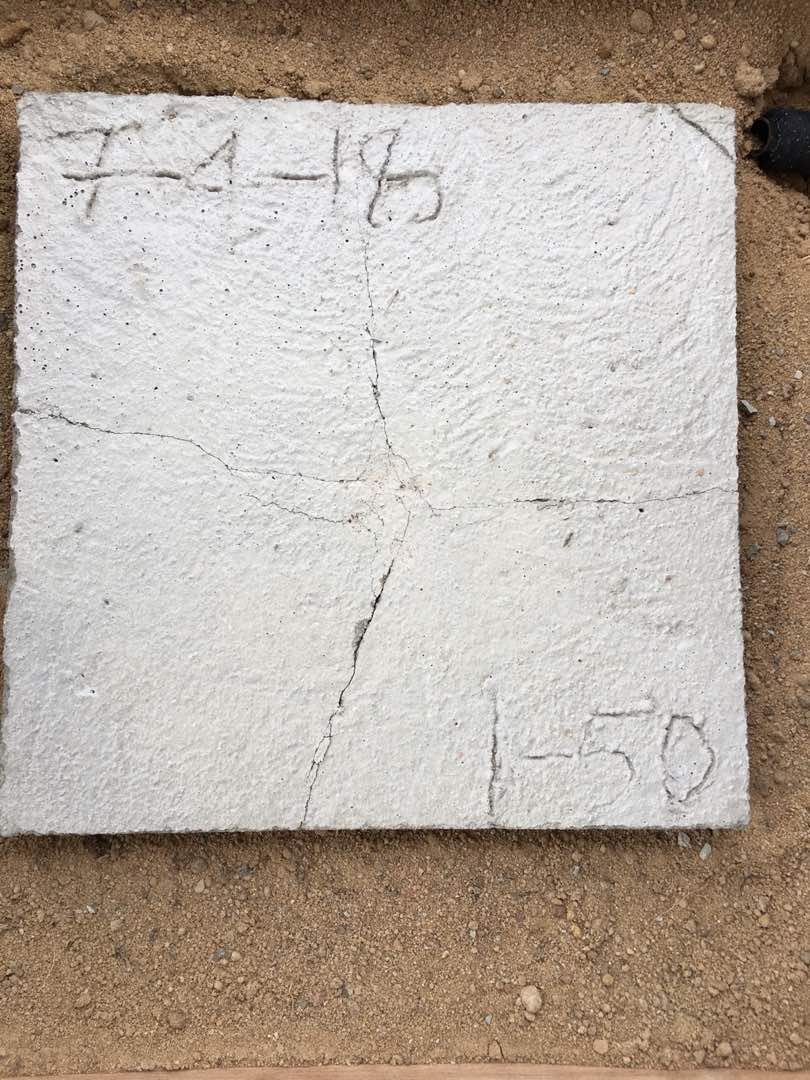 7-1-18
1-50